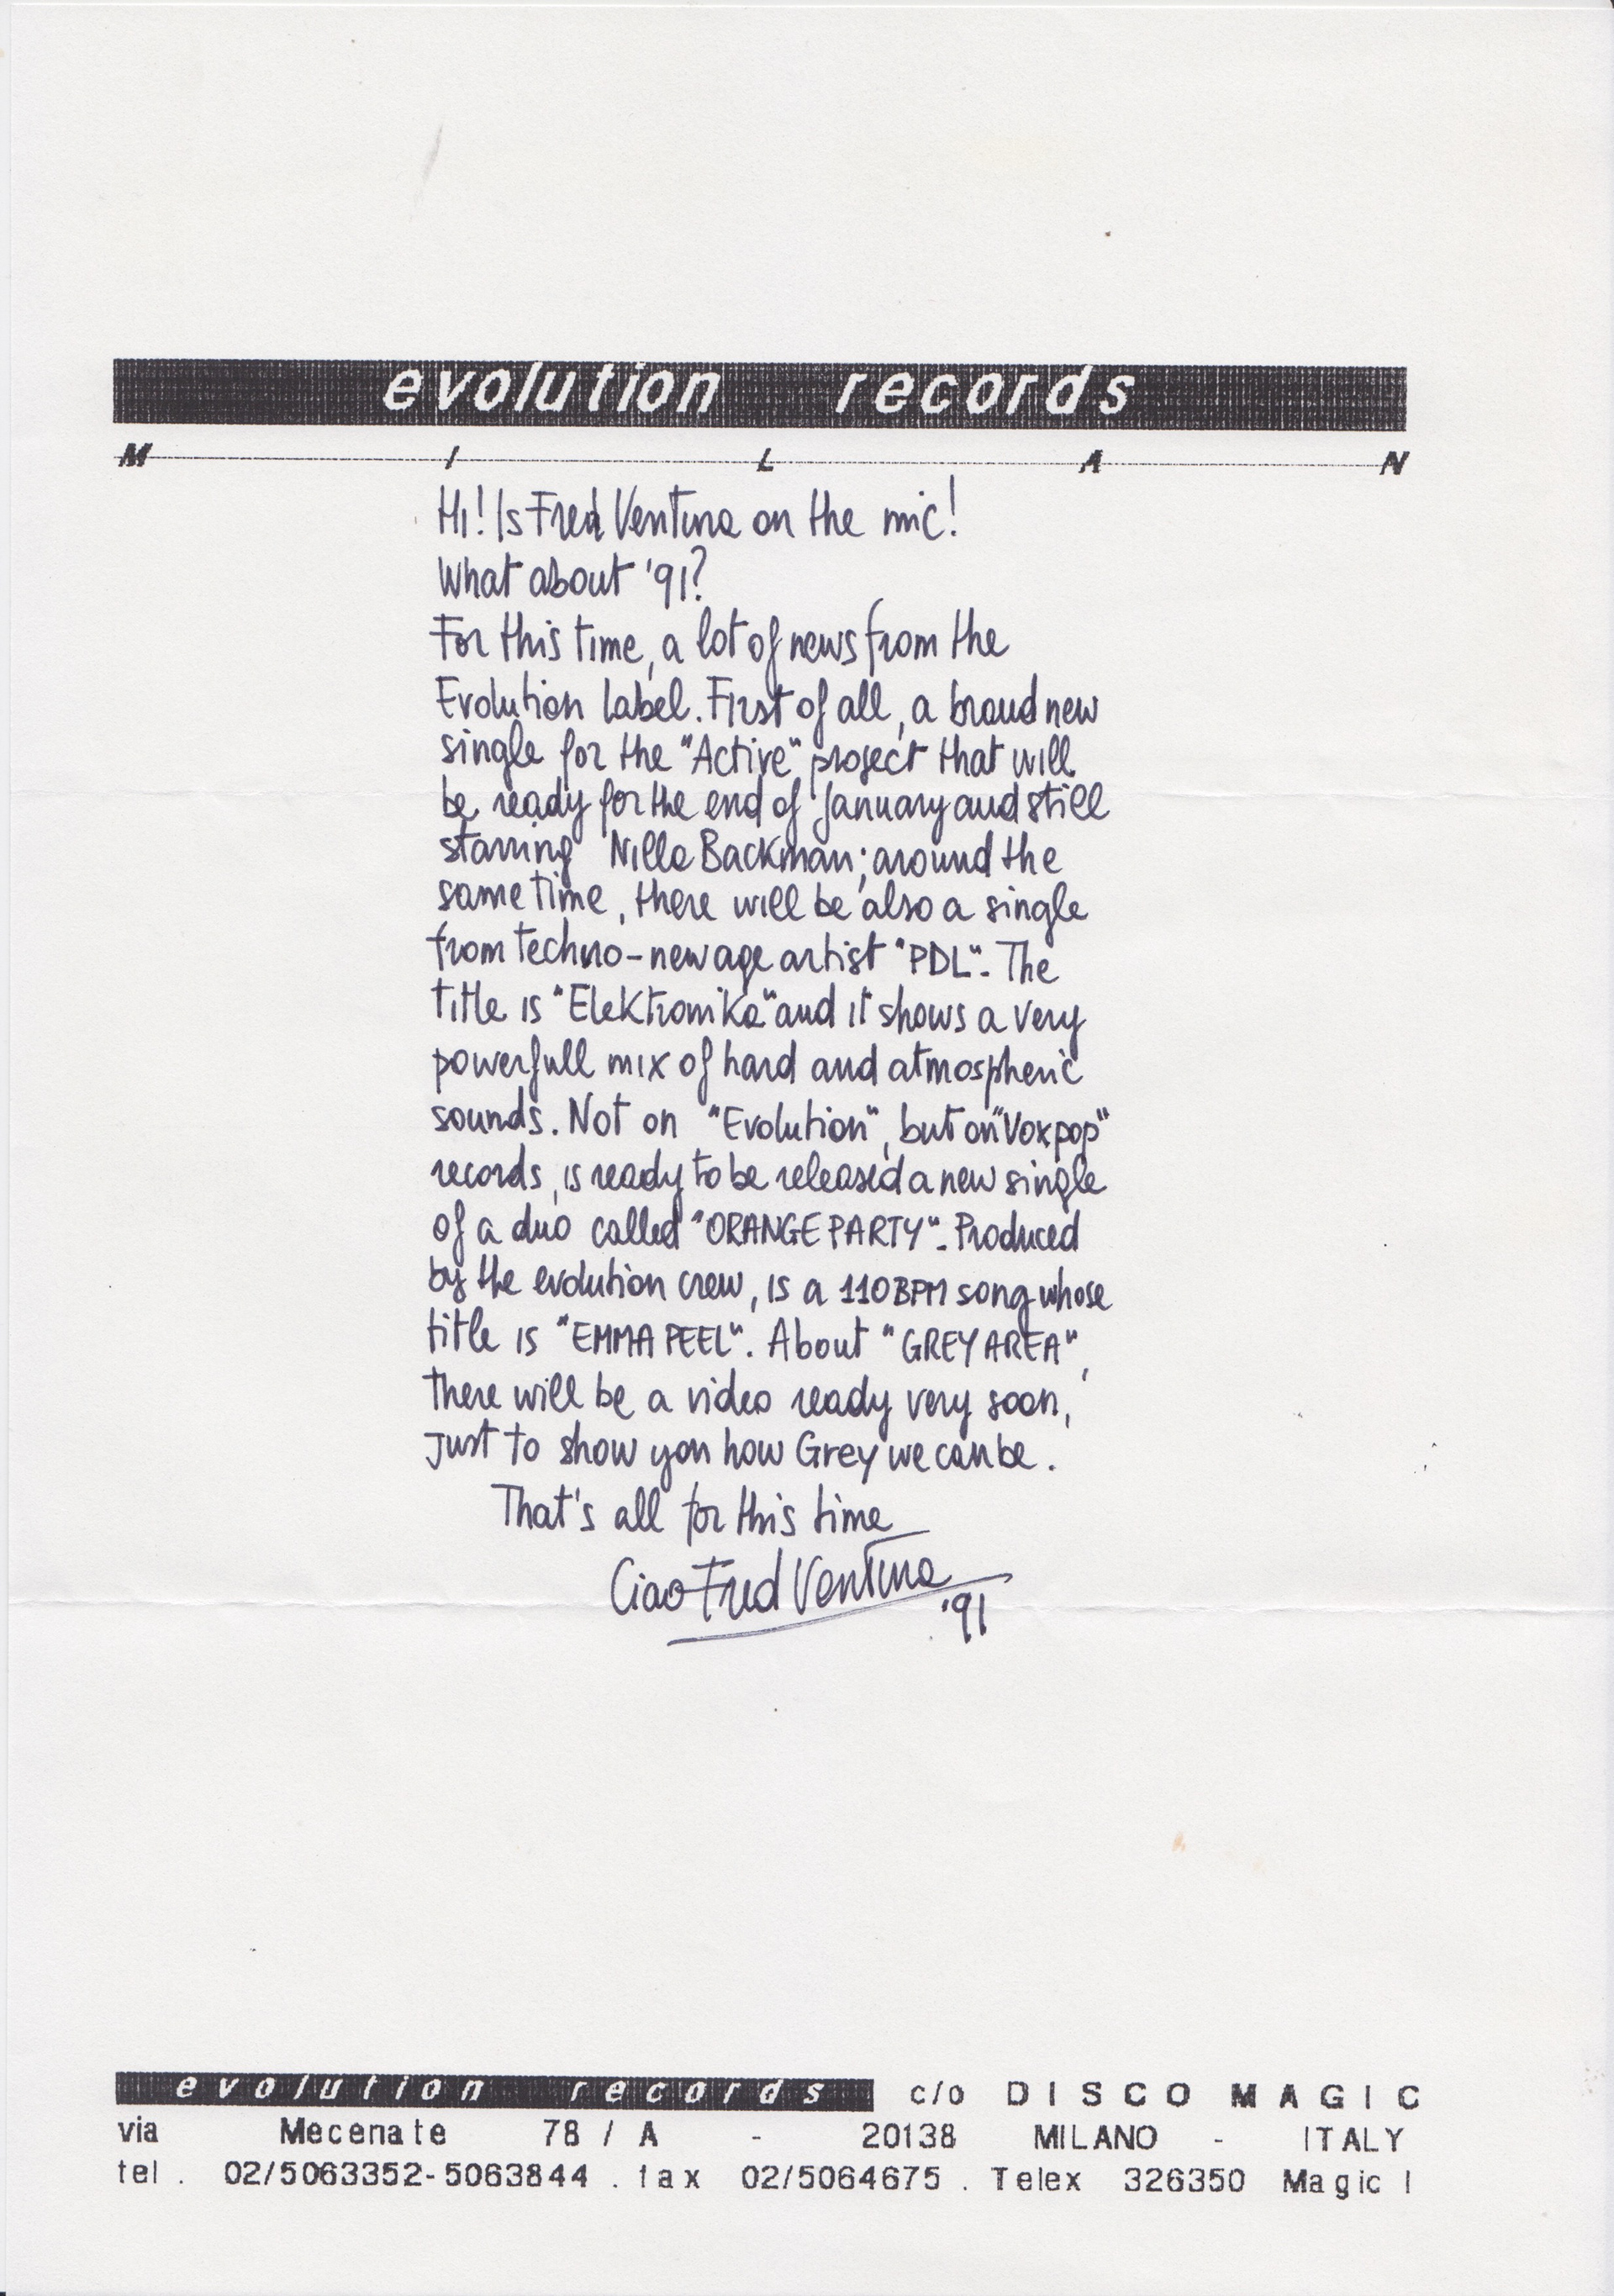 evolution records
M I L A N
Hi! Is Fred Ventura on the mic!
What about '91?
For this time, a lot of news from the
Evolution label. First of all, a brand new
single for the "Active" project that will
be ready for the end of January and still
starring Nilla Backman; around the
same time, there will be also a single
from techno-new age artist "PDL". The
title is "Elektronika" and it shows a very
powerfull mix of hard and atmospheric
sounds. Not on "Evolution", but on "Vox pop"
records, is ready to be released a new single
of a duo called "ORANGE PARTY". Produced
by the evolution crew, is a 110 BPM song whose
title is "EMMA PEEL". About "GREY AREA",
there will be a video ready very soon,
just to show you how Grey we can be.
That's all for this time
Ciao Fred Ventura
'91
evolution records c/o DISCO MAGIC
via Mecenate 78 / A - 20138 MILANO - ITALY
tel. 02/5063352-5063844 . fax 02/5064675 . Telex 326350 Magic I